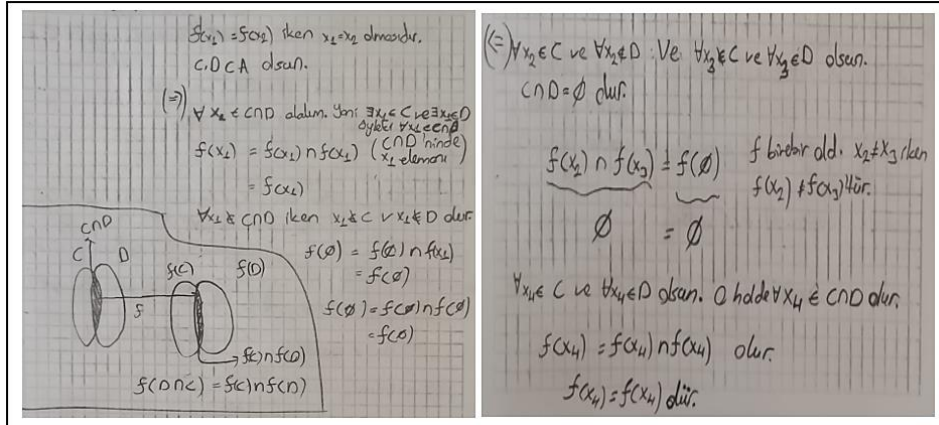 f(x₁) = f(x₂) iken x₁=x₂ olmasıdır.
C,D⊂A olsun.
(⇒) ∀x₁ ∈ C∩D alalım. Yani ∃x₁∈C ve ∃x₁∈D
öyleki ∀x₁∈C∩D
f(x₁) = f(x₁) ∩ f(x₁) (C∩D'ninde x₁ elemanı)
= f(x₁)
∀x₁ ∉ C∩D iken x₁∉C ∨ x₁∉D dur.
f(∅) = f(∅) ∩ f(x₁)
= f(∅)
f(∅) = f(∅) ∩ f(∅)
= f(∅)
C∩D
C D
f
f(C) f(D)
f(C)∩f(D)
f(D∩C) = f(C)∩f(D)
(⇐) ∀x₂∈C ve ∀x₂∉D. Ve ∀x₃∉C ve ∀x₃∈D olsun.
C∩D=∅ dur.
f(x₂) ∩ f(x₃) = f(∅) f birebir old. x₂≠x₃ iken
f(x₂) ≠ f(x₃) 'tür.
∅ = ∅
∀x₄∈ C ve ∀x₄∈D olsun. O halde ∀x₄ ∈ C∩D dur.
f(x₄) = f(x₄) ∩ f(x₄) olur.
f(x₄) = f(x₄) dür.